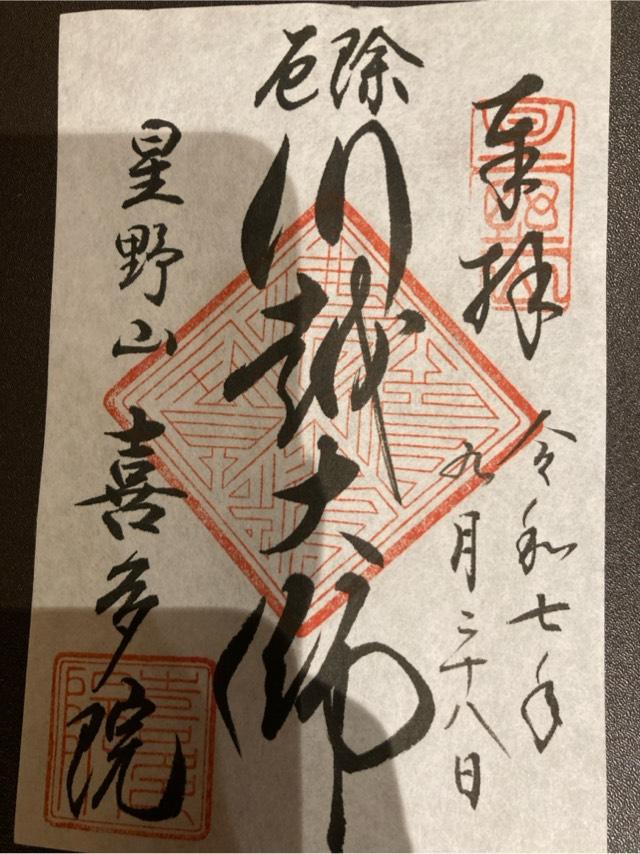 奉拝
令和七年
九月二十八日
厄除
川越大師
星野山
喜多院